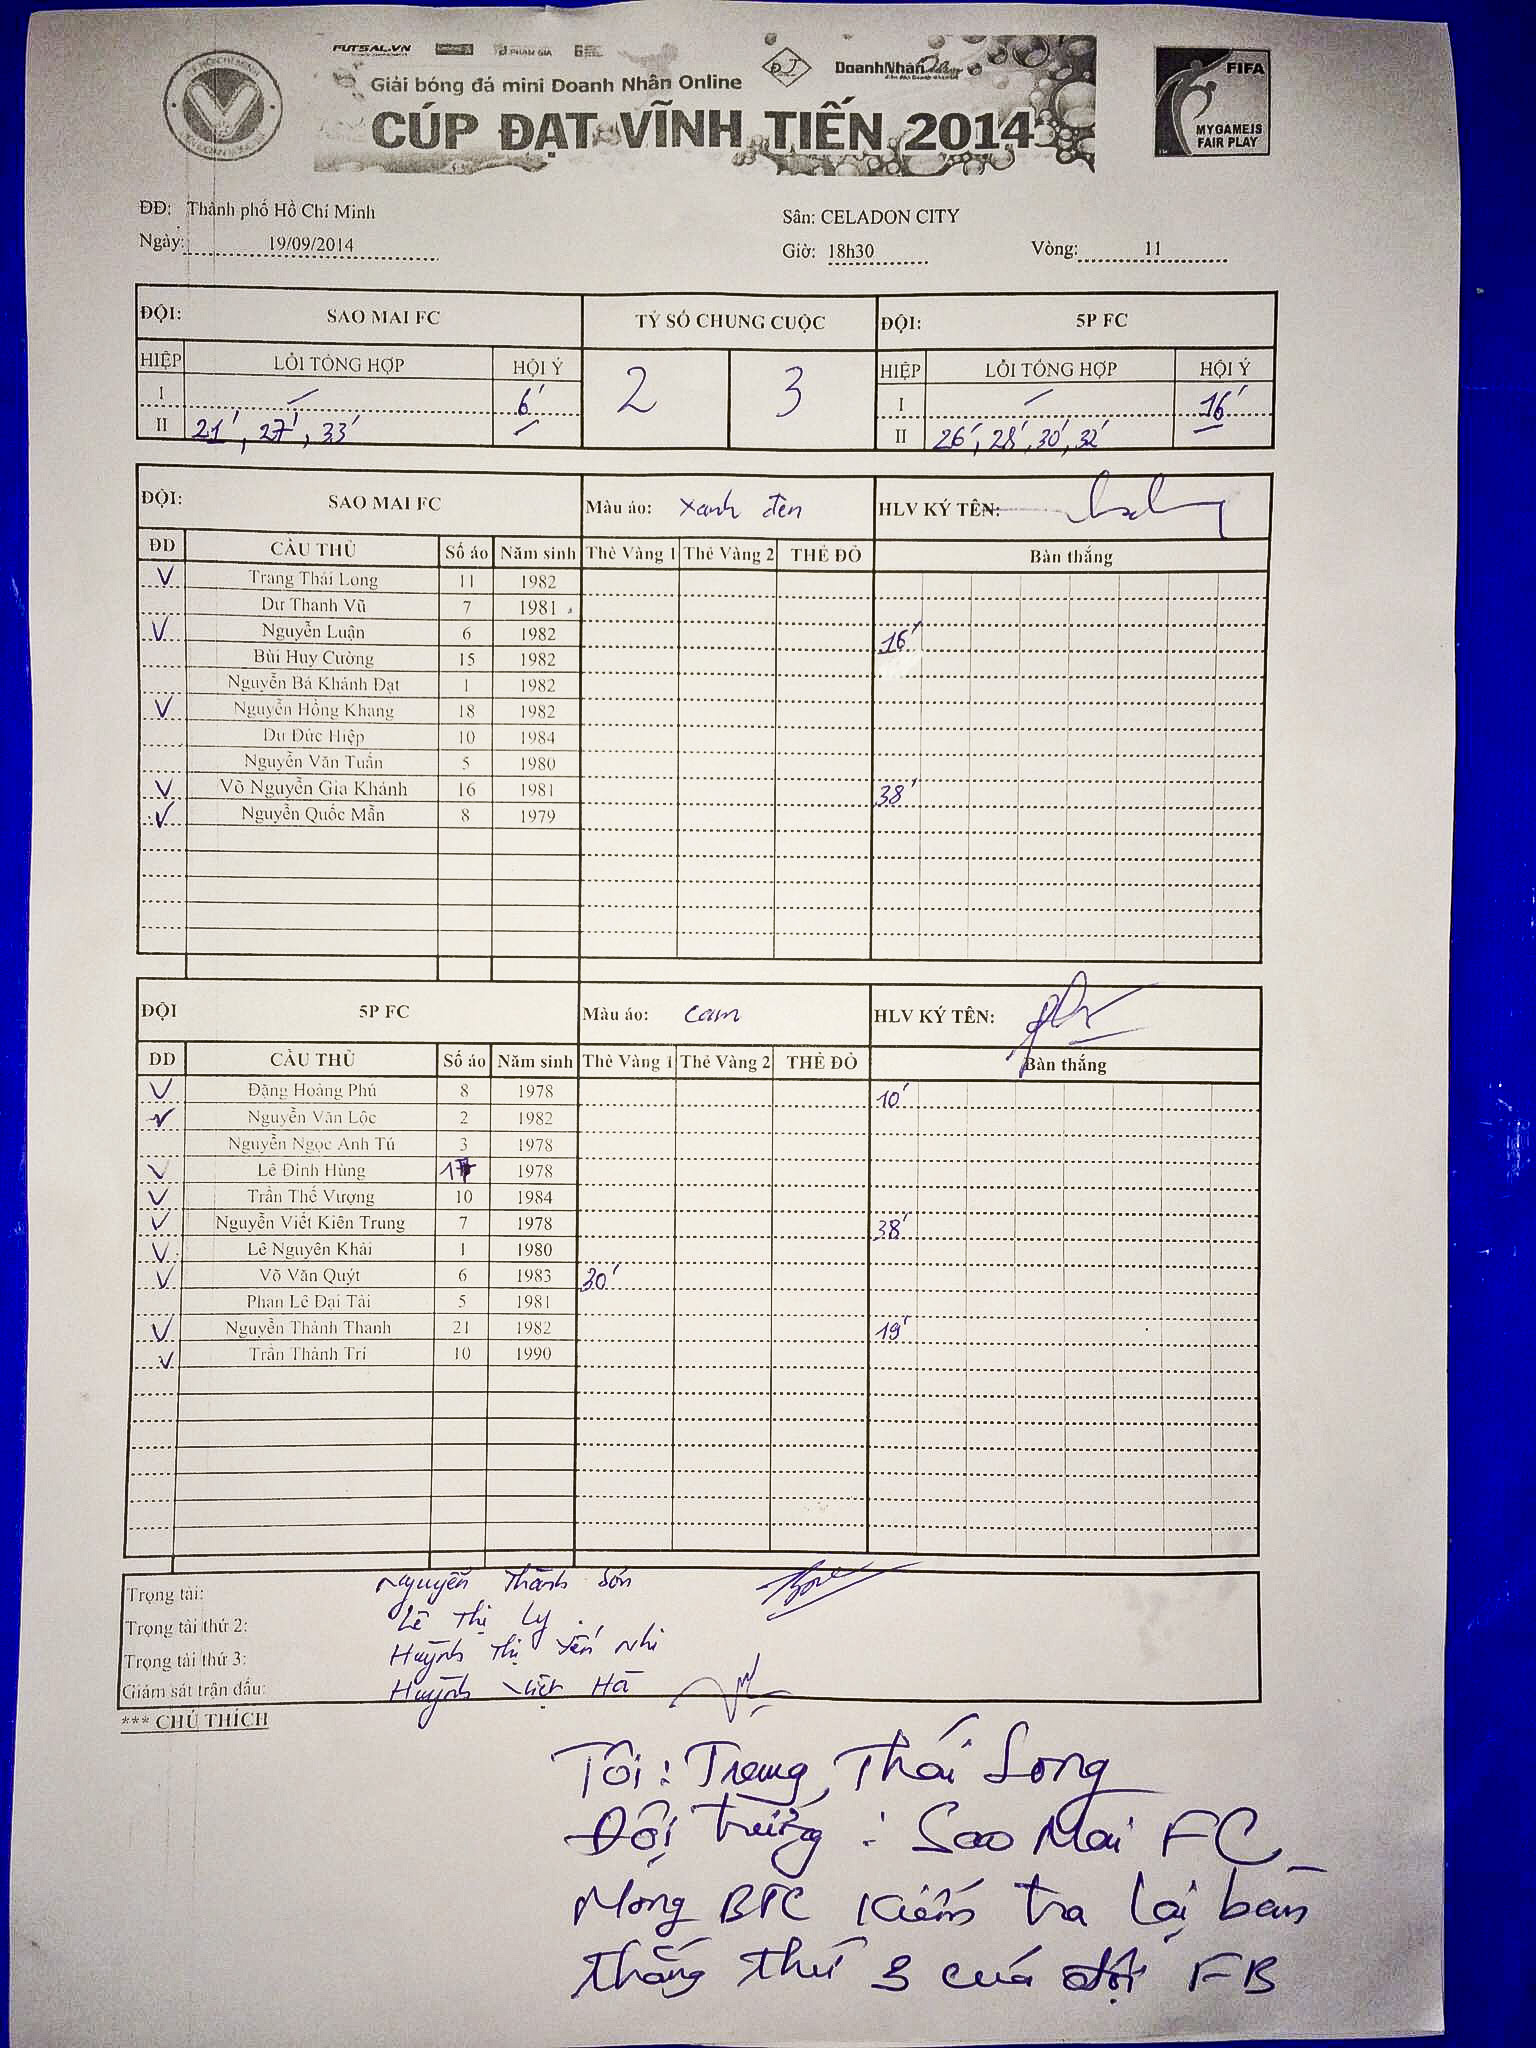 FUTSAL.VN PHAM GIA
Giải bóng đá mini Doanh Nhân Online DoanhNhân
CÚP ĐẠT VĨNH TIẾN 2014
FIFA
MY GAME IS
FAIR PLAY
ĐĐ: Thành phố Hồ Chí Minh Sân: CELADON CITY
Ngày: 19/09/2014 Giờ: 18h30 Vòng: 11
ĐỘI: SAO MAI FC TỶ SỐ CHUNG CUỘC ĐỘI: 5P FC
HIỆP LỖI TỔNG HỢP HỘI Ý 2 3 HIỆP LỖI TỔNG HỢP HỘI Ý
I – 6' I – 16'
II 21', 27', 33' – II 26', 28', 30', 32'
ĐỘI: SAO MAI FC Màu áo: Xanh đen HLV KÝ TÊN:
ĐD CẦU THỦ Số áo Năm sinh Thẻ Vàng 1 Thẻ Vàng 2 THẺ ĐỎ Bàn thắng
V Trang Thái Long 11 1982
Dư Thanh Vũ 7 1981
V Nguyễn Luận 6 1982 16'
Bùi Huy Cường 15 1982
Nguyễn Bá Khánh Đạt 1 1982
V Nguyễn Hồng Khang 18 1982
Du Đức Hiệp 10 1984
Nguyễn Văn Tuấn 5 1980
V Võ Nguyễn Gia Khánh 16 1981 38'
V Nguyễn Quốc Mẫn 8 1979
ĐỘI 5P FC Màu áo: cam HLV KÝ TÊN:
DD CẦU THỦ Số áo Năm sinh Thẻ Vàng 1 Thẻ Vàng 2 THẺ ĐỎ Bàn thắng
V Đặng Hoàng Phú 8 1978 10'
V Nguyễn Văn Lộc 2 1982
Nguyễn Ngọc Anh Tú 3 1978
V Lê Đình Hùng 17 1978
V Trần Thế Vượng 10 1984
V Nguyễn Viết Kiên Trung 7 1978 38'
V Lê Nguyên Khải 1 1980
V Võ Văn Quýt 6 1983 30'
Phan Lê Đại Tài 5 1981
V Nguyễn Thành Thanh 21 1982 19'
V Trần Thành Trí 10 1990
Trọng tài: Nguyễn Thành Sơn
Trọng tài thứ 2: Lê Thị Ly
Trọng tài thứ 3: Huỳnh Thị Yến Nhi
Giám sát trận đấu: Huỳnh Việt Hà
*** CHÚ THÍCH
Tôi: Trang Thái Long
Đội trưởng: Sao Mai FC
Mong BTC kiểm tra lại bàn
thắng thứ 3 của đội FB